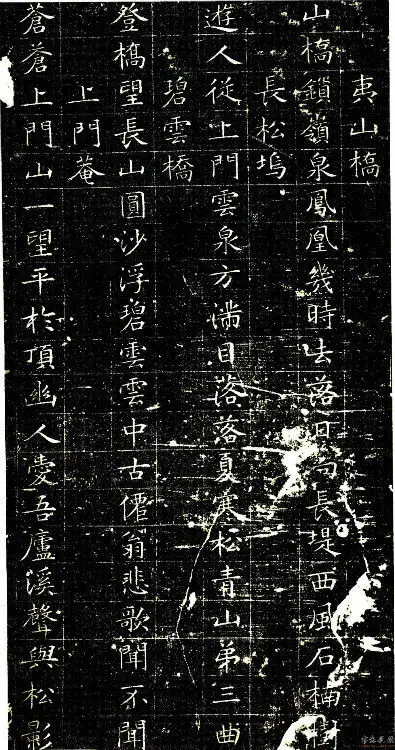 夷山橋
山橋鎖嶺泉鳳凰幾時去落日長堤西風石楠樹
長松塢
遊人從上門雲泉方滿目落落夏寒松青山第三曲
碧雲橋
登橋望長山圓沙浮碧雲雲中古僊翁悲歌聞不聞
上門菴
蒼蒼上門山一望平於頂幽人愛吾廬溪聲與松影